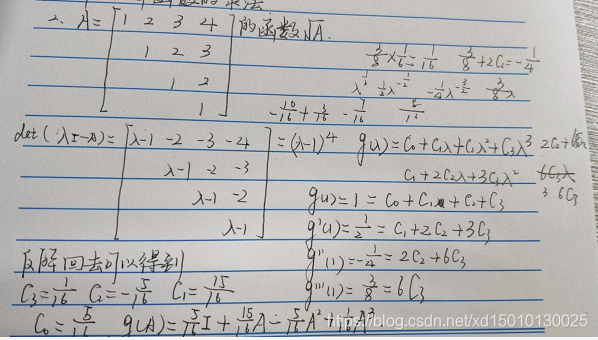 2. A = [ 1 2 3 4 的函数√A.
1 2 3
1 2
1 ]
3/8 × 1/6 = 1/16 3/8 + 2C₂ = -1/4
λ^(1/2) 1/2 λ^(-1/2) -1/4 λ^(-3/2) 3/8 λ
-10/16 + 3/16 -7/16
det(λI-A) = [ λ-1 -2 -3 -4 = (λ-1)⁴ g(λ) = C₀ + C₁λ + C₂λ² + C₃λ³
λ-1 -2 -3 C₁ + 2C₂λ + 3C₃λ²
λ-1 -2 g(1) = 1 = C₀ + C₁ + C₂ + C₃
λ-1 ] g'(1) = 1/2 = C₁ + 2C₂ + 3C₃
反解回去可以得到 g''(1) = -1/4 = 2C₂ + 6C₃
C₃ = 1/16 C₂ = -5/16 C₁ = 15/16 g'''(1) = 3/8 = 6C₃
C₀ = 5/16 g(A) = 5/16 I + 15/16 A - 5/16 A² + 1/16 A³
https://blog.csdn.net/xd15010130025